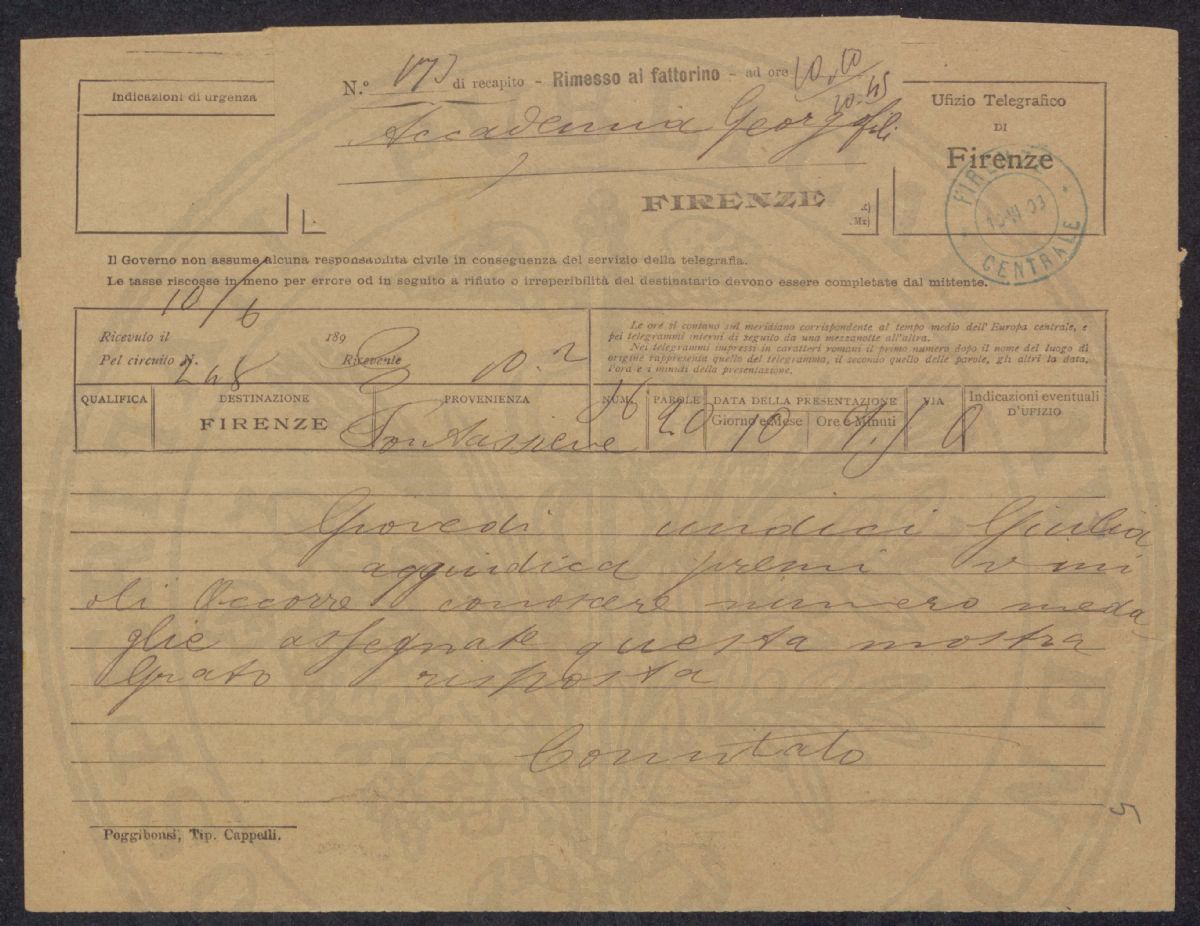 Indicazioni di urgenza
N.º 173 di recapito - Rimesso al fattorino - ad ore 10,10
10.45
Accademia Georgofili
FIRENZE
Ufizio Telegrafico
DI
Firenze
FIRENZE
CENTRALE
Il Governo non assume alcuna responsabilità civile in conseguenza del servizio della telegrafia.
Le tasse riscosse in meno per errore od in seguito a rifiuto o irreperibilità del destinatario devono essere completate dal mittente.
Ricevuto il 10/6 189
Pel circuito N. 248 Ricevente
Le ore si contano sul meridiano corrispondente al tempo medio dell'Europa centrale, e
pei telegrammi interni di seguito da una mezzanotte all'altra.
Nei telegrammi impressi in caratteri romani il primo numero dopo il nome del luogo di
origine rappresenta quello del telegramma, il secondo quello delle parole, gli altri la data,
l'ora e i minuti della presentazione.
QUALIFICA DESTINAZIONE PROVENIENZA NUM. PAROLE DATA DELLA PRESENTAZIONE VIA Indicazioni eventuali D'UFIZIO
Giorno e Mese Ore e Minuti
FIRENZE Pontassieve 16 20 10
Giovedi undici Giulia
aggiudica premi vini
oli Occorre conoscere numero meda
glie assegnate questa mostra
Grato risposta
Comitato
5
Poggibonsi, Tip. Cappelli.